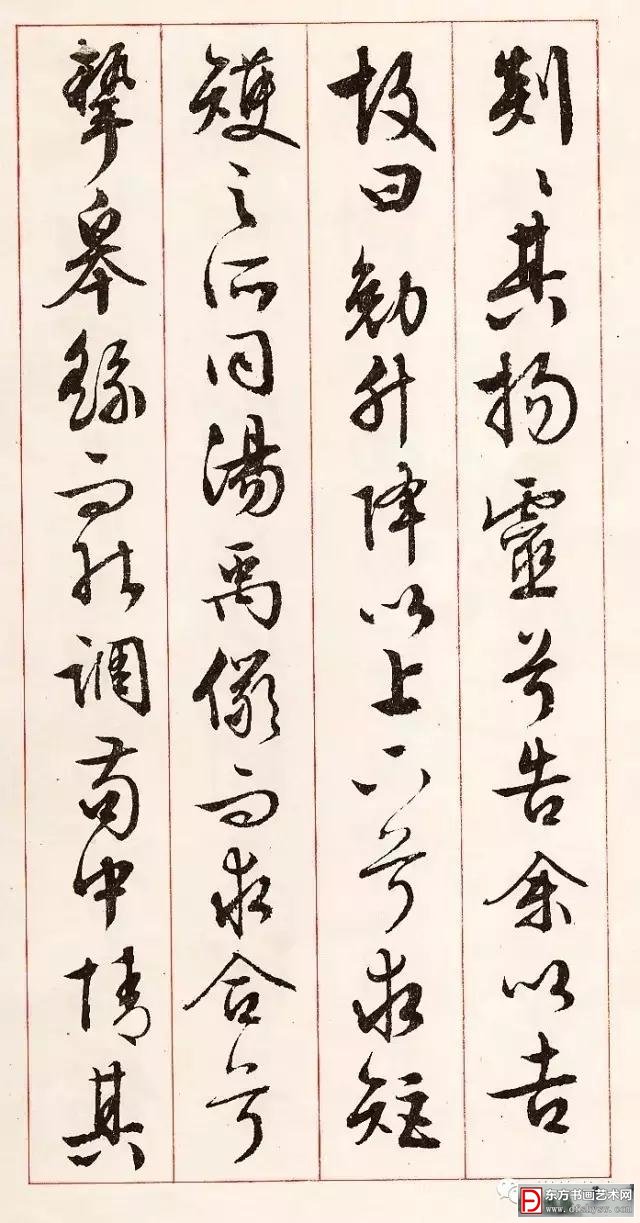 剡〻其揚靈兮告余以吉
故曰勉升降以上下兮求矩
矱之所同湯禹儼而求合兮
摯皋繇而能調苟中情其
东方书画艺术网
www.dfshysw.com